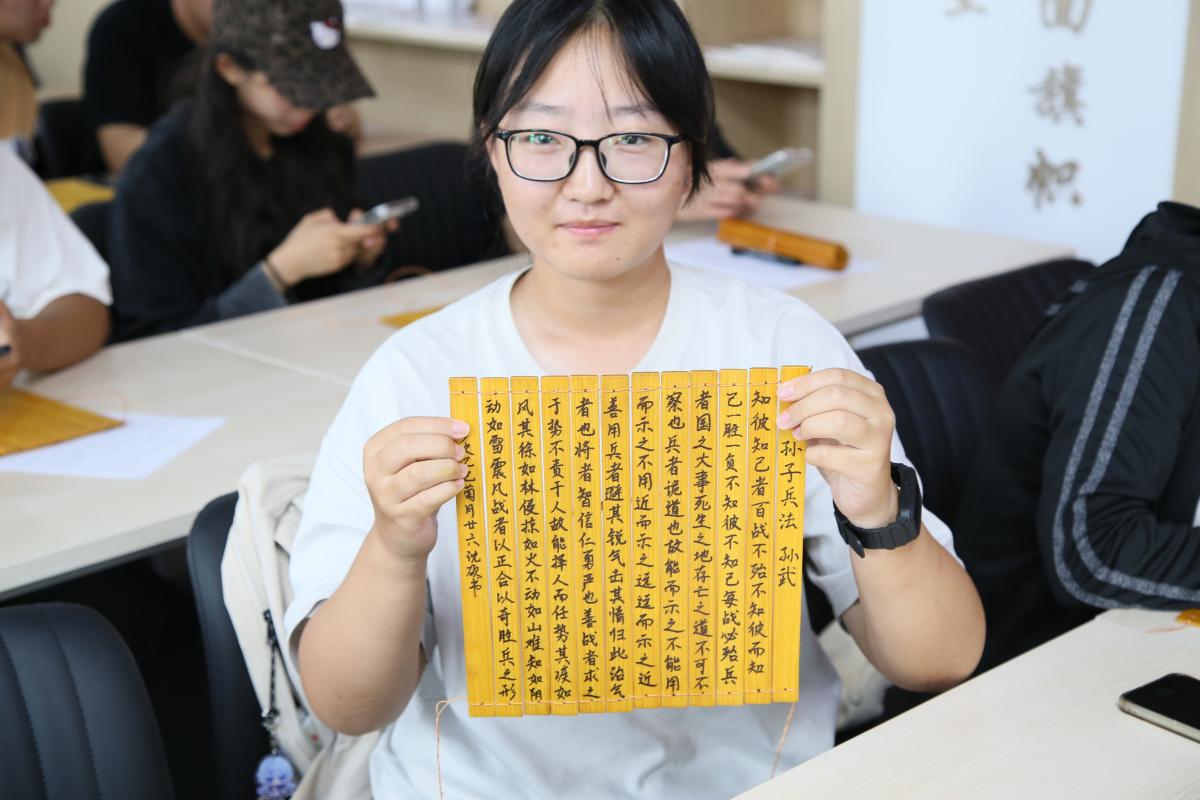 孙子兵法 孙武
知彼知己者百战不殆不知彼而知
己一胜一负不知彼不知己每战必殆兵
者国之大事死生之地存亡之道不可不
察也兵者诡道也故能而示之不能用
而示之不用近而示之远远而示之近
善用兵者避其锐气击其惰归此治气
者也将者智信仁勇严也善战者求之
于势不责于人故能择人而任势其疾如
风其徐如林侵掠如火不动如山难知如阴
动如雷震风战者以正合以奇胜兵之形
巳菊月廿六沈书
面旗帜